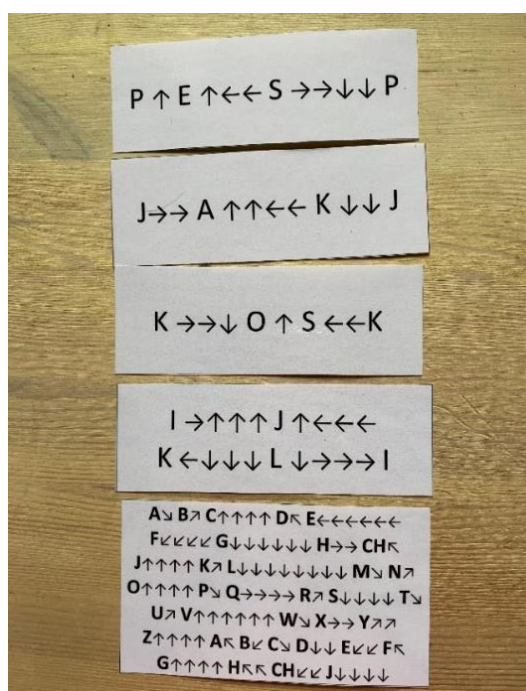 P ↑ E ↑←← S →→↓↓ P
J→→ A ↑↑←← K ↓↓ J
K →→↓ O ↑ S ←←K
I →↑↑↑ J ↑←←←
K ←↓↓↓ L ↓→→→ I
A↘ B↗ C↑↑↑↑ D↖ E←←←←←←
F↙↙↙↙ G↓↓↓↓↓↓ H→→ CH↖
J↑↑↑↑ K↗ L↓↓↓↓↓↓↓↓↓ M↘ N↗
O↑↑↑↑ P↘ Q→→→→ R↗ S↓↓↓↓ T↘
U↗ V↑↑↑↑↑↑ W↘ X→→ Y↗↗
Z↑↑↑↑ A↖ B↙ C↘ D↓↓ E↙↙ F↖
G↑↑↑↑ H↖↖ CH↙↙ J↓↓↓↓